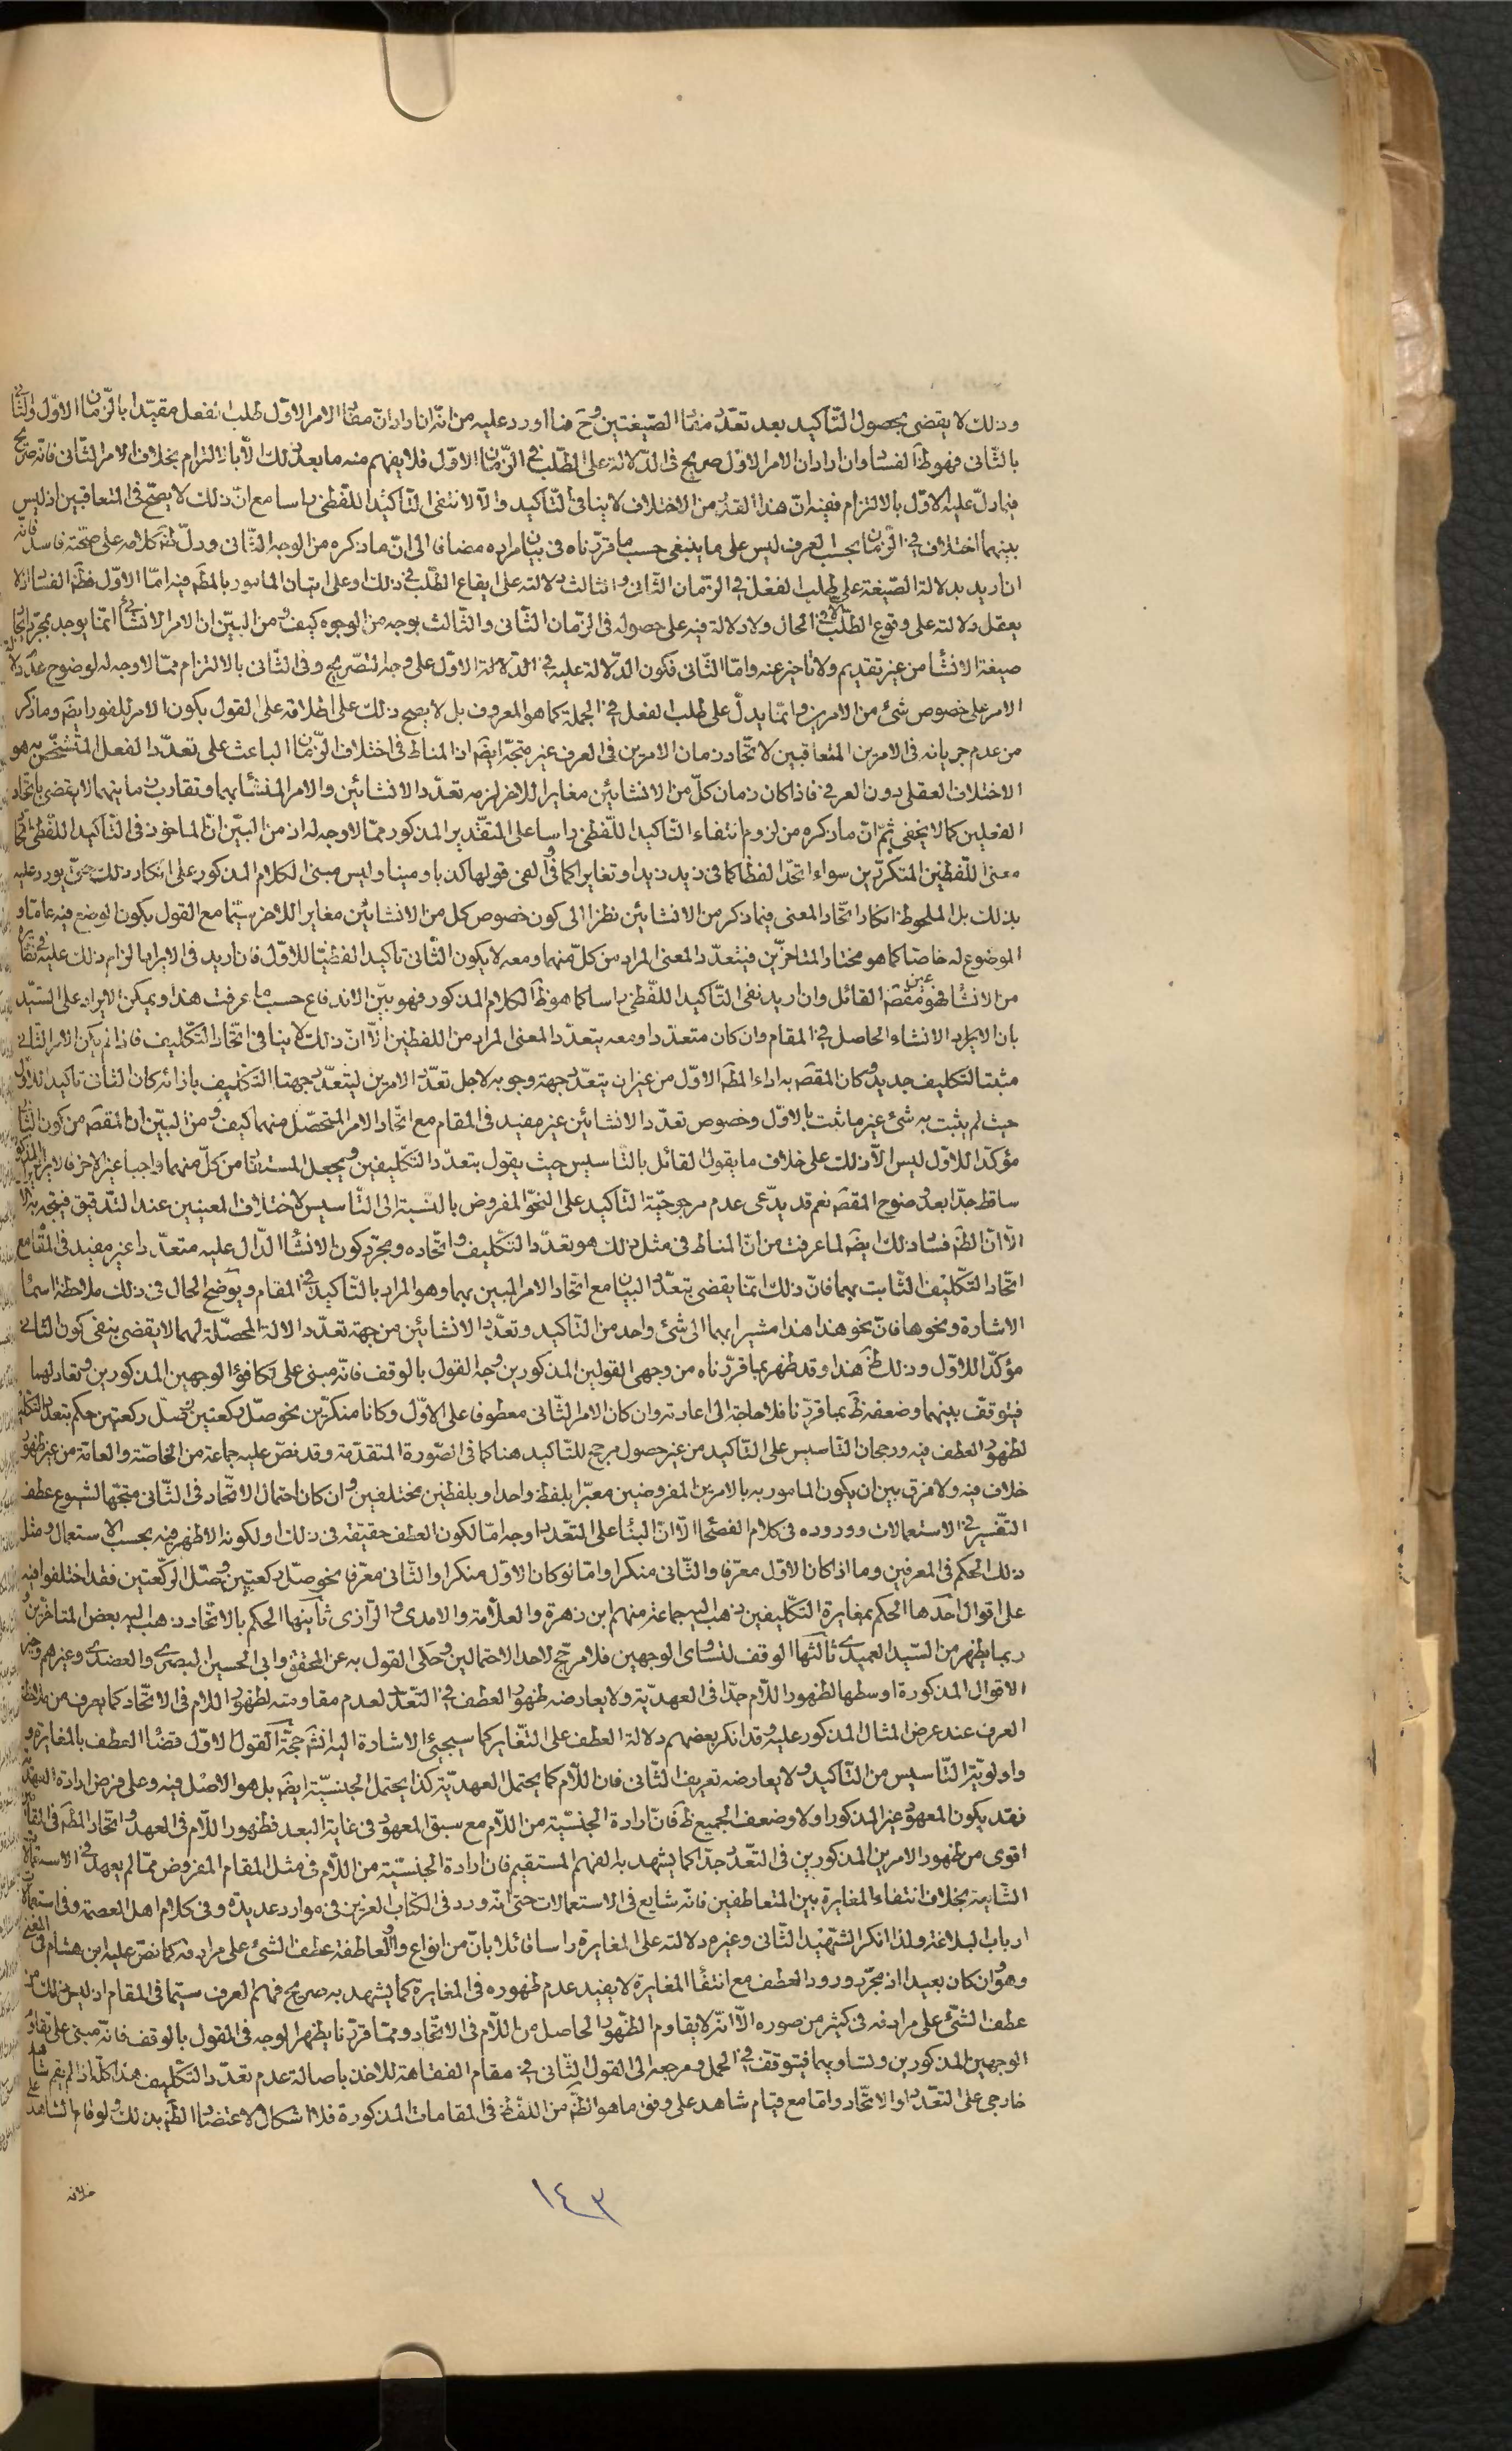 وذلك لا يقضى بحصول التّاكيد بعد تعدّد مفاد الصّيغتين وح فما اورد عليه من انّه ان اراد انّ مفاد الامر الاوّل طلب الفعل مقيّدا بالزّمان الاوّل والثّانى
بالثّانى فهو ظ الفساد وان اراد ان الامر الاوّل صريح فى الدّلالة على الطّلب فى الزّمان الاوّل فلا يفهم منه ما بعد ذلك الّا بالالتزام بخلاف الامر الثّانى فانّه صريح
فيما دلّ عليه الاوّل بالالتزام ففيه انّ هذا القدر من الاختلاف لا ينافى التّاكيد والّا لانتفى التّاكيد اللّفظى راسا مع انّ ذلك لا يصحّ فى المتعاقبين اذ ليس
بينهما اختلاف فى الزّمان بحسب العرف ليس على ما ينبغى حسب ما قرّرناه فى بيان مراده مضافا الى انّ ما ذكره من الوجه الثّانى ودلّ ظ كلامه على صحّته فاسد فانّه
ان اريد بدلالة الصّيغة على طلب الفعل فى الزّمان الثّانى والثالث دلالته على ايقاع الطّلب فى ذلك او على اتيان المامور بالمط فيه امّا الاوّل فظ الفساد اذ لا
يعقل دلالته على وقوع الطّلب الّا فى الحال ولا دلالة فيه على حصوله فى الزّمان الثّانى والثّالث بوجه من الوجوه كيف ومن البيّن ان الامر الانشائى انّما يوجد بمجرّد ايجاد
صيغة الانشاء من غير تقديم ولا تاخير عنه وامّا الثّانى فكون الدّلالة عليه فى الدّلالة الاوّل على وجه التّصريح وفى الثّانى بالالتزام ممّا لا وجه له لوضوح عدم دلالة
الامر على خصوص شئ من الامرين وانّما يدلّ على طلب الفعل فى الجملة كما هو المعروف بل لا يصح ذلك على اطلاقه على القول بكون الامر للفور ايضا وما ذكر
من عدم جريانه فى الامرين المتعاقبين لاتّحاد زمان الامرين فى العرف غير متّجه ايضا اذ المناط فى اختلاف الزّمان الباعث على تعدّد الفعل المتشخّص به هو
الاختلاف العقلى دون العرفى فاذا كان زمان كلّ من الانشائين مغايرا للاخر لزمه تعدّد الانشائين والامر المنشأ بهما وتقارب ما بينهما لا يقضى باتّحاد
الفعلين كما لا يخفى ثمّ انّ ما ذكره من لزوم انتفاء التّاكيد اللّفظى راسا على التّقدير المذكور ممّا لا وجه له اذ من البيّن انّ الماخوذ فى التّاكيد اللّفظى اتّحاد
معنى اللّفظين المتكرّرين سواء اتّحدا لفظا كما فى زيد زيد او تغايرا كما فى والفى قولها كذبا ومينا وليس مبنى الكلام المذكور على انكار ذلك حتى يورد عليه
بذلك بل الملحوظ انكار اتّحاد المعنى فيما ذكر من الانشائين نظرا الى كون خصوص كل من الانشائين مغايرا للاخر سيّما مع القول بكون الوضع فيه عامّا و
الموضوع له خاصّا كما هو مختار المتاخرين فيتعدّد المعنى المراد من كلّ منهما ومعه لا يكون الثّانى تاكيدا لفظيّا للاوّل فان اريد فى الايراد الزام ذلك عليه فى نظائره
من الانشاء فهو عين مقصد القائل وان اريد نفى التّاكيد اللّفظى راسا كما هو ظ الكلام المذكور فهو بيّن الاندفاع حسب ما عرفت هذا ويمكن الايراد على السّيّد
بان الايراد الانشاء الحاصل فى المقام وان كان متعدّدا ومعه يتعدّد المعنى المراد من اللفظين الّا انّ ذلك لا ينافى اتّحاد التّكليف فاذا لم يكن الامر الثّانى
مثبتا لتكليف جديد وكان المقصد به اداء المط الاوّل من غير ان يتعدّد جهة وجوبه لاجل تعدّد الامرين ليتعدّد جهتا التّكليف بازائه كان الثانى تاكيدا للاوّل
حيث لم يثبت به شئ غير ما ثبت بالاوّل وخصوص تعدّد الانشائين غير مفيد فى المقام مع اتّحاد الامر المتحصّل منهما كيف ومن البيّن ان المقصد من كون الثّانى
مؤكّدا للاوّل ليس الّا ذلك على خلاف ما يقول القائل بالتّاسيس حيث يقول بتعدّد التّكليفين ويجعل المستفاد من كلّ منهما واجبا غير الاخر فالايراد المذكور
ساقط جدّا بعد وضوح المقصد نعم قد يدّعى عدم مرجوحيّة التّاكيد على النحو المفروض بالنّسبة الى التّاسيس لاختلاف المعنيين عند التدقيق فيتّجه به الا
الّا انّ الظ فساد ذلك ايضا لما عرفت من انّ المناط فى مثل ذلك هو تعدّد التّكليف واتّحاده ومجرّد كون الانشاء الدّال عليه متعدّدا غير مفيد فى المقام مع
اتّحاد التّكليف الثّابت بهما فانّ ذلك انّما يقضى بتعدّد البيان مع اتّحاد الامر المبين بهما وهو المراد بالتّاكيد فى المقام ويوضح الحال فى ذلك ملاحظة اسماء
الاشارة ونحوها فانّ نحو هذا هذا مشيرا بهما الى شئ واحد من التّاكيد وتعدّد الانشائين من جهة تعدّد الالة المحصّلة لهما لا يقضى بنفى كون الثانى
مؤكّدا للاوّل وذلك ظ هذا وقد ظهر بما قرّرناه من وجهى القولين المذكورين وجه القول بالوقف فانّه مبنى على تكافؤ الوجهين المذكورين وتعادلهما
فيتوقف بينهما وضعفه ظ بما قررنا فلا حاجة الى اعادته وان كان الامر الثّانى معطوفا على الاوّل وكانا منكرين نحو صلّ ركعتين وصلّ ركعتين حكم بتعدّد التّكليف
لظهور العطف فيه ورجحان التّاسيس على التّاكيد من غير حصول مرجح للتّاكيد هنا كما فى الصّورة المتقدّمة وقد نصّ عليه جماعة من الخاصّة والعامّة من غير ظهور
خلاف فيه ولا فرق بين ان يكون المامور به بالامرين المفروضين معبّرا بلفظ واحد او بلفظين مختلفين وان كان احتمال الاتّحاد فى الثّانى متّجها لشيوع عطف
التّفسير فى الاستعمالات ووروده فى كلام الفصحاء الّا انّ البناء على التعدّد اوجه امّا لكون العطف حقيقة فى ذلك او لكونه الاظهر منه بحسب الاستعمال ومثل
ذلك الحكم فى المعرفين وما اذا كان الاوّل معرّفا والثّانى منكرا وامّا لو كان الاوّل منكرا والثّانى معرّفا نحو صلّ ركعتين وصلّ الرّكعتين فقد اختلفوا فيه
على اقوال احدها الحكم بمغايرة التّكليفين ذهب اليه جماعة منهم ابن زهرة والعلّامة والامدى والرّازى ثانيها الحكم بالاتّحاد ذهب اليه بعض المتاخّرين و
ربما يظهر من السّيّد العميدى ثالثها الوقف لتساوى الوجهين فلا مرجّح لاحد الاحتمالين وحكى القول به عن المحقق وابى الحسين البصرى والعضدى وغيرهم وخير
الاقوال المذكورة اوسطها لظهور اللّام جدّا فى العهديّة ولا يعارضه ظهور العطف فى التعدّد لعدم مقاومته لظهور اللّام فى الاتّحاد كما يعرف من ملاحظة
العرف عند عرض المثال المذكور عليه وقد انكر بعضهم دلالة العطف على التّغاير كما سيجئ الاشارة اليه انش حجّة القول الاوّل قضاء العطف بالمغايرة و
واولويّة التّاسيس من التّاكيد ولا يعارضه تعريف الثّانى فان اللّام كما يحتمل العهديّة كذا يحتمل الجنسيّة ايضا بل هو الاصل فيه وعلى فرض ارادة العهد
فقد يكون المعهود غير المذكور اولا وضعف الجميع ظ فانّ ارادة الجنسيّة من اللّام مع سبق المعهود فى غاية البعد فظهور اللّام فى العهد واتّحاد المط فى المقام
اقوى من ظهور الامرين المذكورين فى التّعدّد جدّا كما يشهد به الفهم المستقيم فان ارادة الجنسيّة من اللّام فى مثل المقام المفروض ممّا لم يعهد فى الاستعمالات
الشّايعة بخلاف انتفاء المغايرة بين المتعاطفين فانّه شايع فى الاستعمالات حتى انّه ورد فى الكتاب العزيز فى موارد عديدة وفى كلام اهل العصمة وفى استعمالات
ارباب البلاغة ولذا انكر الشّهيد الثّانى وغيره دلالته على المغايرة راسا قائلا بانّ من انواع واو العاطفة عطف الشئ على مرادفه كما نصّ عليه ابن هشام فى المغنى
وهو وان كان بعيدا اذ مجرّد ورود العطف مع انتفاء المغايرة لا يفيد عدم ظهوره فى المغايرة كما يشهد به صريح فهم العرف سيّما فى المقام اذ ليس ذلك من
عطف الشّئ على مرادفه فى كثير من صوره الّا انّه لا يقاوم الظّهور الحاصل من اللّام فى الاتّحاد وممّا قرّرنا يظهر الوجه فى القول بالوقف فانّه مبنى على تقاوم
الوجهين المذكورين وتساويهما فيتوقف فى الحمل ومرجعه الى القول الثّانى فى مقام الفقاهة للاخذ باصالة عدم تعدّد التّكليف هذا كلّه اذا لم يقم شاهد
خارجى على التعدّد او الاتّحاد وامّا مع قيام شاهد على وفق ما هو الظ من اللّفظ فى المقامات المذكورة فلا اشكال لاعتضاد الظ بذلك ولو قام الشاهد على
خلافه
١٤٣